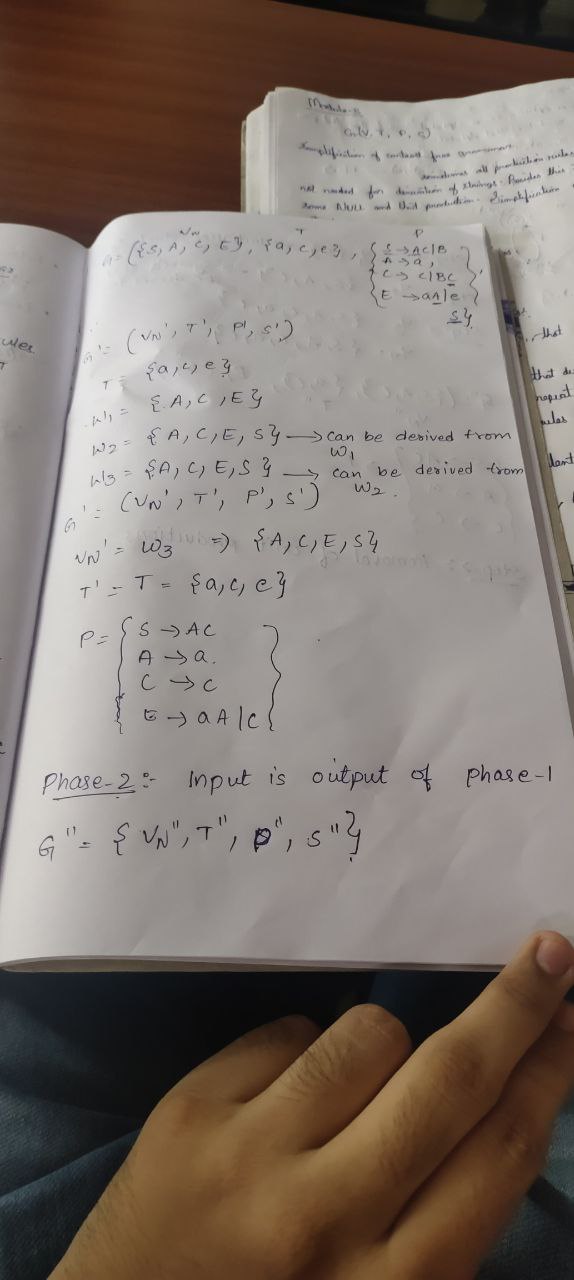 Module-
G(V, T, P, S)
Simplification of context free grammar
sometimes all production rules
not needed for derivation of strings. Besides this
some NULL and Unit production. Simplification
VN T P
G = ({S, A, C, E}, {a, c, e}, { S → AC|B
A → a,
C → c|BC
E → aA|e }
S}
G' = (VN', T', P', S')
T = {a, c, e}
W1 = {A, C, E}
W2 = {A, C, E, S} → can be derived from
W1
W3 = {A, C, E, S} → can be derived from
W2.
G' = (VN', T', P', S')
VN' = W3 ⇒ {A, C, E, S}
T' = T = {a, c, e}
P = { S → AC
A → a.
C → c
E → aA|c }
Phase-2 :- Input is output of phase-1
G" = { VN", T", P", S"}
that
that